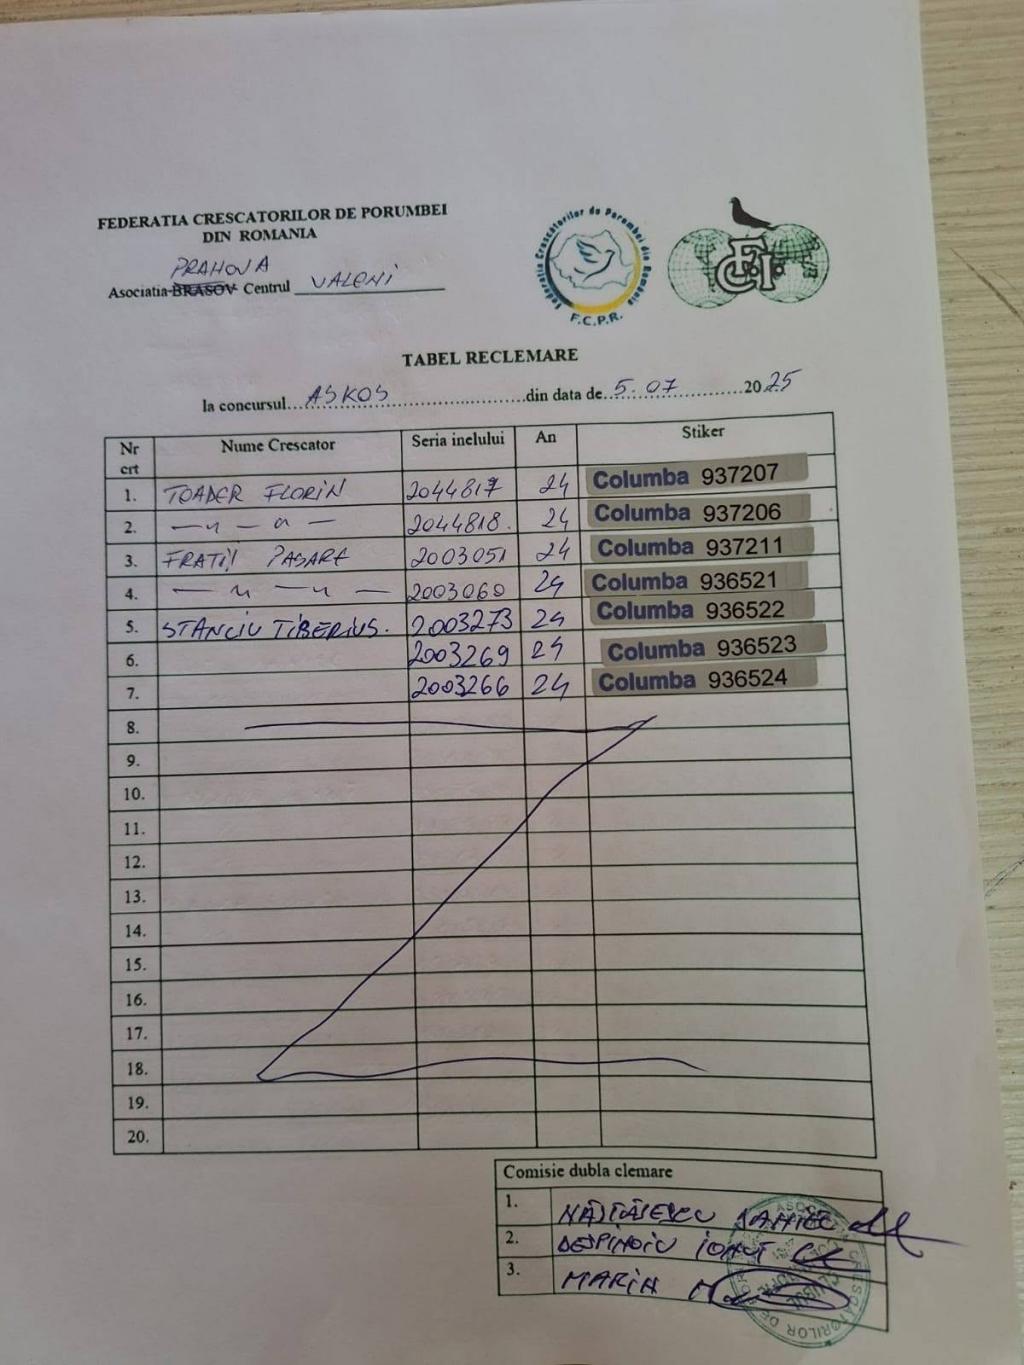 FEDERATIA CRESCATORILOR DE PORUMBEI
DIN ROMANIA
PRAHOVA
Asociatia BRASOV Centrul VALENI
Federatia Crescatorilor de Porumbei din Romania
F.C.P.R.
F.C.I.
TABEL RECLEMARE
la concursul ASKOS din data de 5.07 2025
Nr crt Nume Crescator Seria inelului An Stiker
1. TOADER FLORIN 2044817 24 Columba 937207
2. — u — u — 2044818. 24 Columba 937206
3. FRATII PASARE 2003051 24 Columba 937211
4. — u — u — 2003060 24 Columba 936521
5. STANCIU TIBERIUS. 2003273 24 Columba 936522
6. 2003269 24 Columba 936523
7. 2003266 24 Columba 936524
8.
9.
10.
11.
12.
13.
14.
15.
16.
17.
18.
19.
20.
Comisie dubla clemare
1.
2. DESPINOIU IONUT
3. MARIN